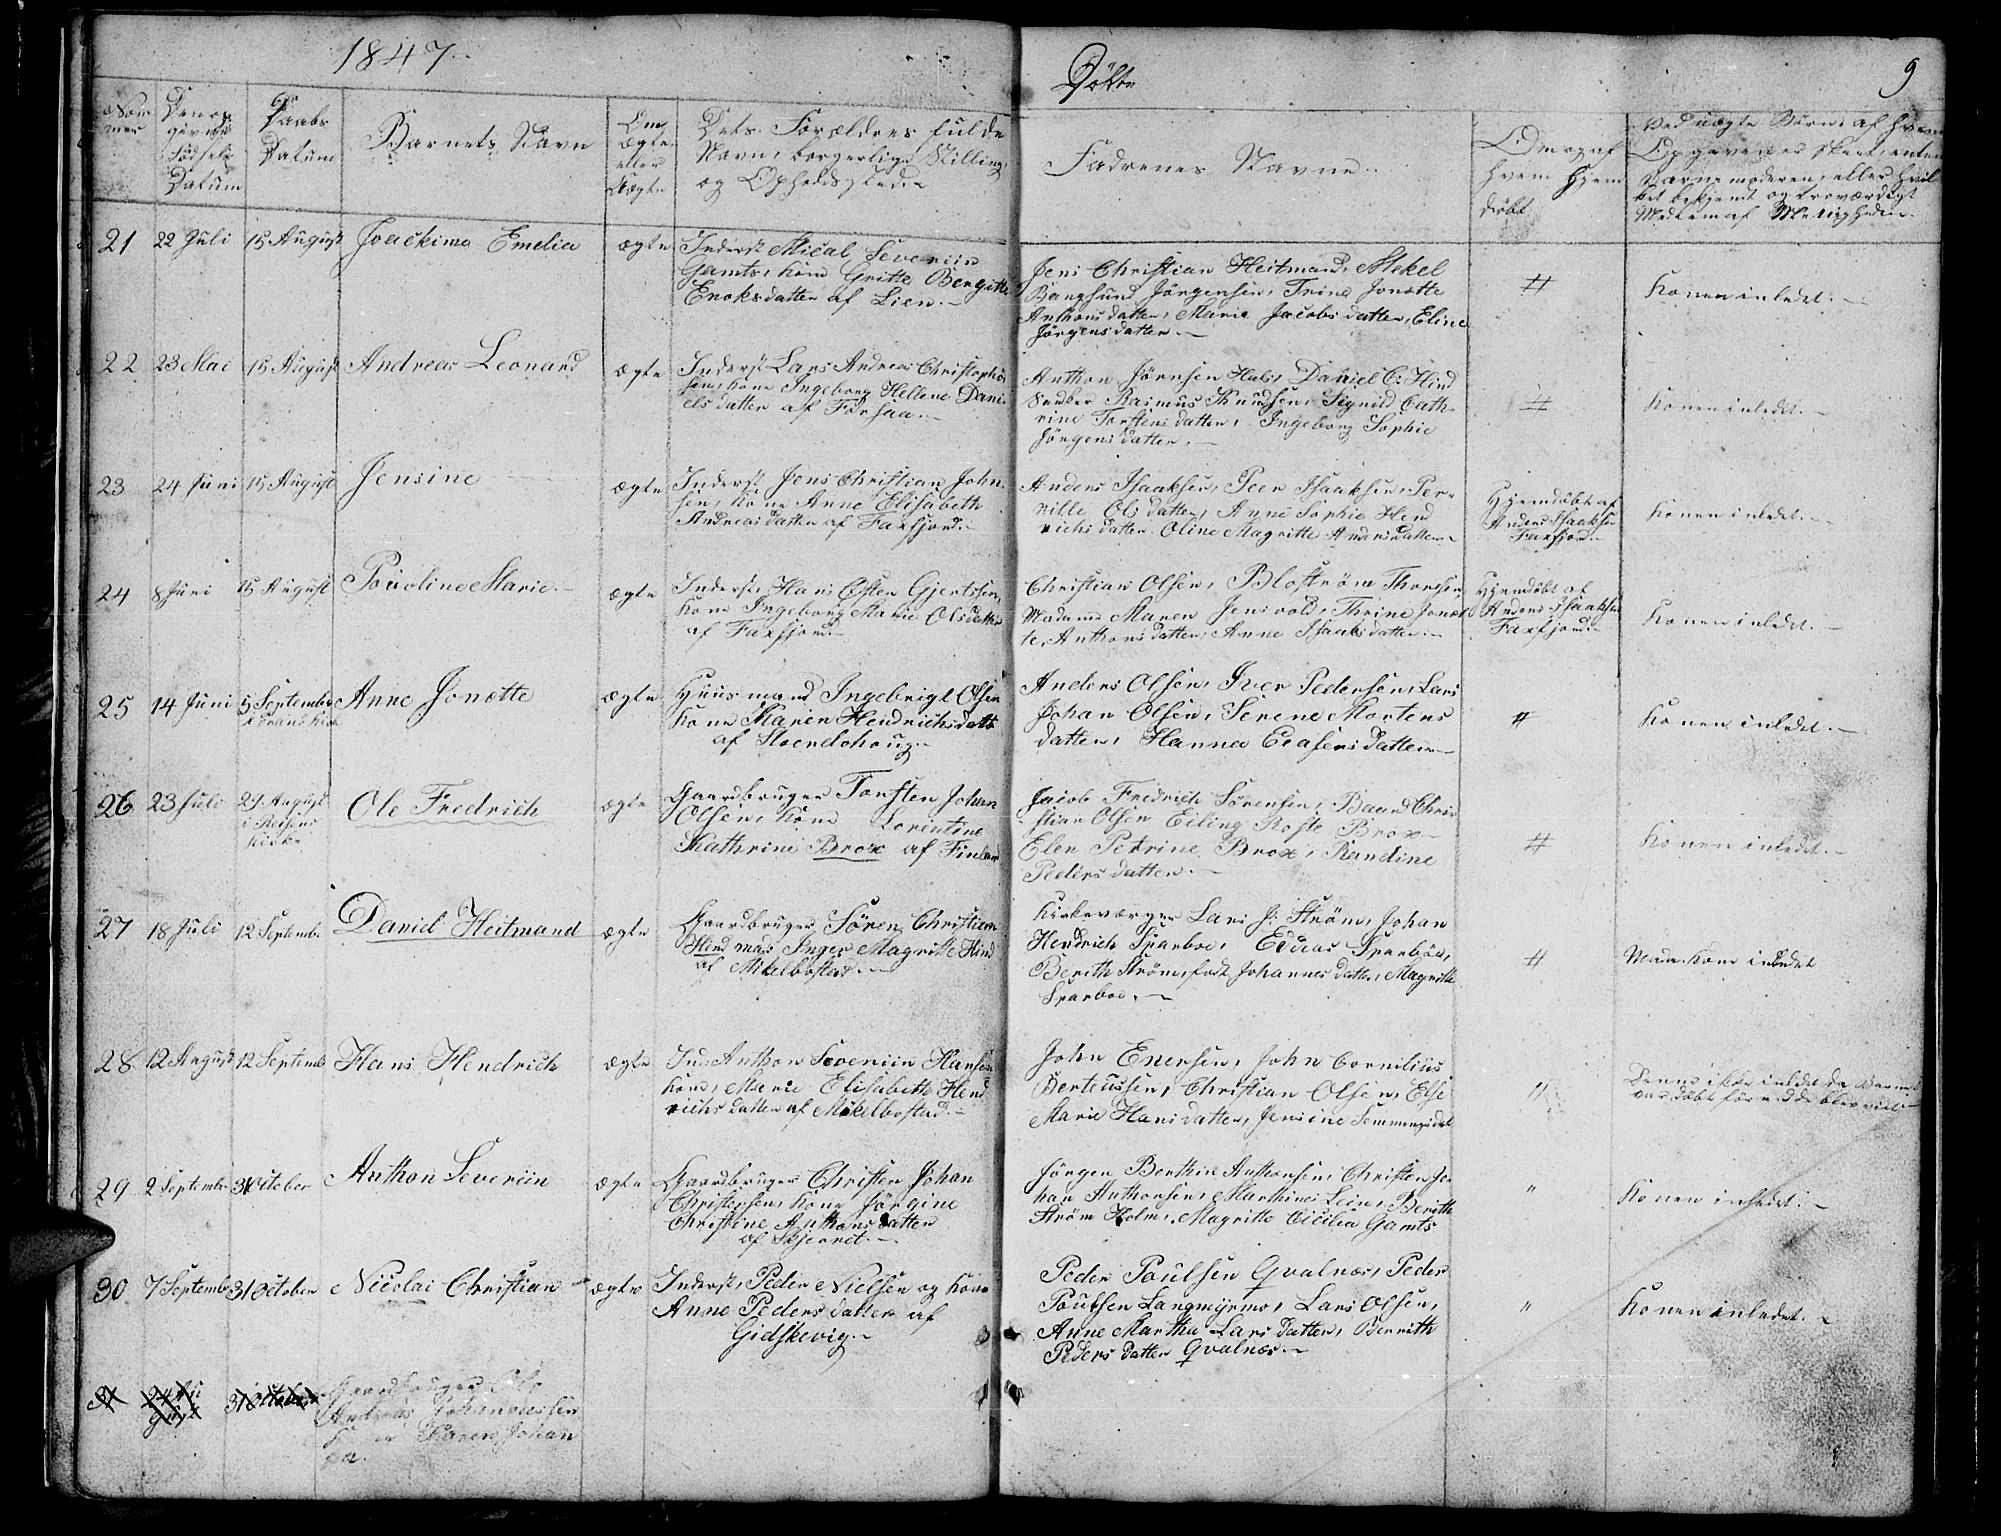 1847.
Døbte
9
Nom-
mer
Den op-
givne
Fødsels
Datum
Daabs
Datum
Barnets Navn
Om
Ægte
eller
Uægte
Dets Forældres fulde
Navn, borgerlige Stilling
og Opholdssted.
Faderenes Navne.
Om og af
hvem hjem
døbt
Ved uægte Børn: af hvem
Opgaven er skeet, enten
Barnemoderen, eller hvil-
ket bekjendt og troværdigt
Medlem af Menigheden.
21
22 Juli
15 August
Joackima Emelia
ægte
Inderst Mical Severiin
Gamts, Kone Gritte Bergitte
Enoksdatter af Lien.
Jens Christian Heitmand, Mekel
Bangsund Jørgensen, Trine Jonette
Anthonsdatter, Marie Jacobsdatter, Eline
Jørgensdatter.
#
Konen inledet.
22
23 Mai
15 August
Andreas Leonard
ægte
Inderst Lars Andreas Christophe
sen, Kone Ingeborg Hellene Dani-
elsdatter af Forsaa.
Anthon Jørnsen Hals, Daniel C. Hind
Rasmus Knudsen, Sigrild Cath-
rine Torstensdatter, Ingeborg Sophie
Jørgensdatter.
#
Konen inledet.
23
24 Juni
15 August
Jensine
ægte
Inderst Jens Christian John-
sen, Kone Anne Elisabeth
Andreasdatter af Faxfjord.
Anders Isaaksen, Peer Isaaksen, Per-
nille Olsdatter, Anne Sophie Hend
richsdatter Oline Magritte Andersdatter
Hjemdøbt af
Anders Isaaksen
Faxfjord.
Konen inledet.
24
8 Juni
15 August
Pouoline Marie.
ægte
Inderst, Hans Østen Gjertssen,
Kone Ingeborg Marie Olsdatter
af Faxfjord.
Christian Olsen, Blostrøm Thorsen,
Madame Maren Jensvold, Thrine Jonæt
te, Anthonsdatter, Anne Isaaksdatter.
Hjemdøbt af
Anders Isaaksen
Faxfjord.
Konen inledet.
25
14 Juni
5 September
i Tranø Kirk
Anne Jonette
ægte
Huusmand Ingebrigt Olsen
Kone Maren Hendrichsdatt
af
Anders Olsen, Iver Pedersen, Lars
Johan Olsen, Serene Mortens
datter, Hanna datter
#
Konen inledet.
26
23 Juli
29 August
i Reisens
Kirke
Ole Fredrich
ægte
Gaardbruger Torsten Johan
Olsen, Kone Lorentine
Kathrine Brox af Finland
Jacob Fredrich Sørensen, Baard Chri
stian Olsen Eiling Roste Brox
Elen Petrine Brox, Randine
Pedersdatter.
#
Konen inledet.
27
18 Juli
12 Septemb.
Daniel Heitmand
ægte
Gaardbruger Søren Christian
Hind mad. Inger Magritte Hind
af Mikelbostad.
Kirkeværger Lars J: Strøm, Johan
Hendrich Sparboe, Sparboe,
Berith Strøm, født Johannesdatter, Magritte
Sparboe.
#
Mada. Kone inledet
28
12 August
12 Septemb
Hans Hendrich
ægte
In: Anthon Severiin Hansen
Kone, Marie Elisabeth Hend
richsdatter af Mikelbostad.
John Enersen, John Cornilius
Berteussen, Christian Olsen, Else
Marie Hansdatter, Jensine Semmingsdat
"
Konen ikke inledet da Barnet
var døbt før end de blev viet
29
2 September
31 October
Anthon Severiin
ægte
Gaardbruger Christen Johan
Christensen, Kone Jørgine
Christine Anthonsdatter
af Skjervet.
Jørgen Berthin Anthonsen, Christen Jo
han Anthonsen, Marthines Lein, Berith
Strøm Holm, Magritte Cicilia Gamts
"
Konen inledet.
30
7 Septembr
31 October
Nicolai Christian
ægte
Inderst, Peder Nielsen og Kone
Anne Pedersdatter af
Gidskevig.
Peder Poulsen Qvalnæs, Peder
Poulsen Langmyrmo, Lars Olsen,
Anne Martha Larsdatter, Berrith
Pedersdatter Qvalnæs.
"
Konen inledet.
31
24 Au
gust
31 October
Gaardbruger Ole
Andreas Johannessen
Kone Karen Johan
na.